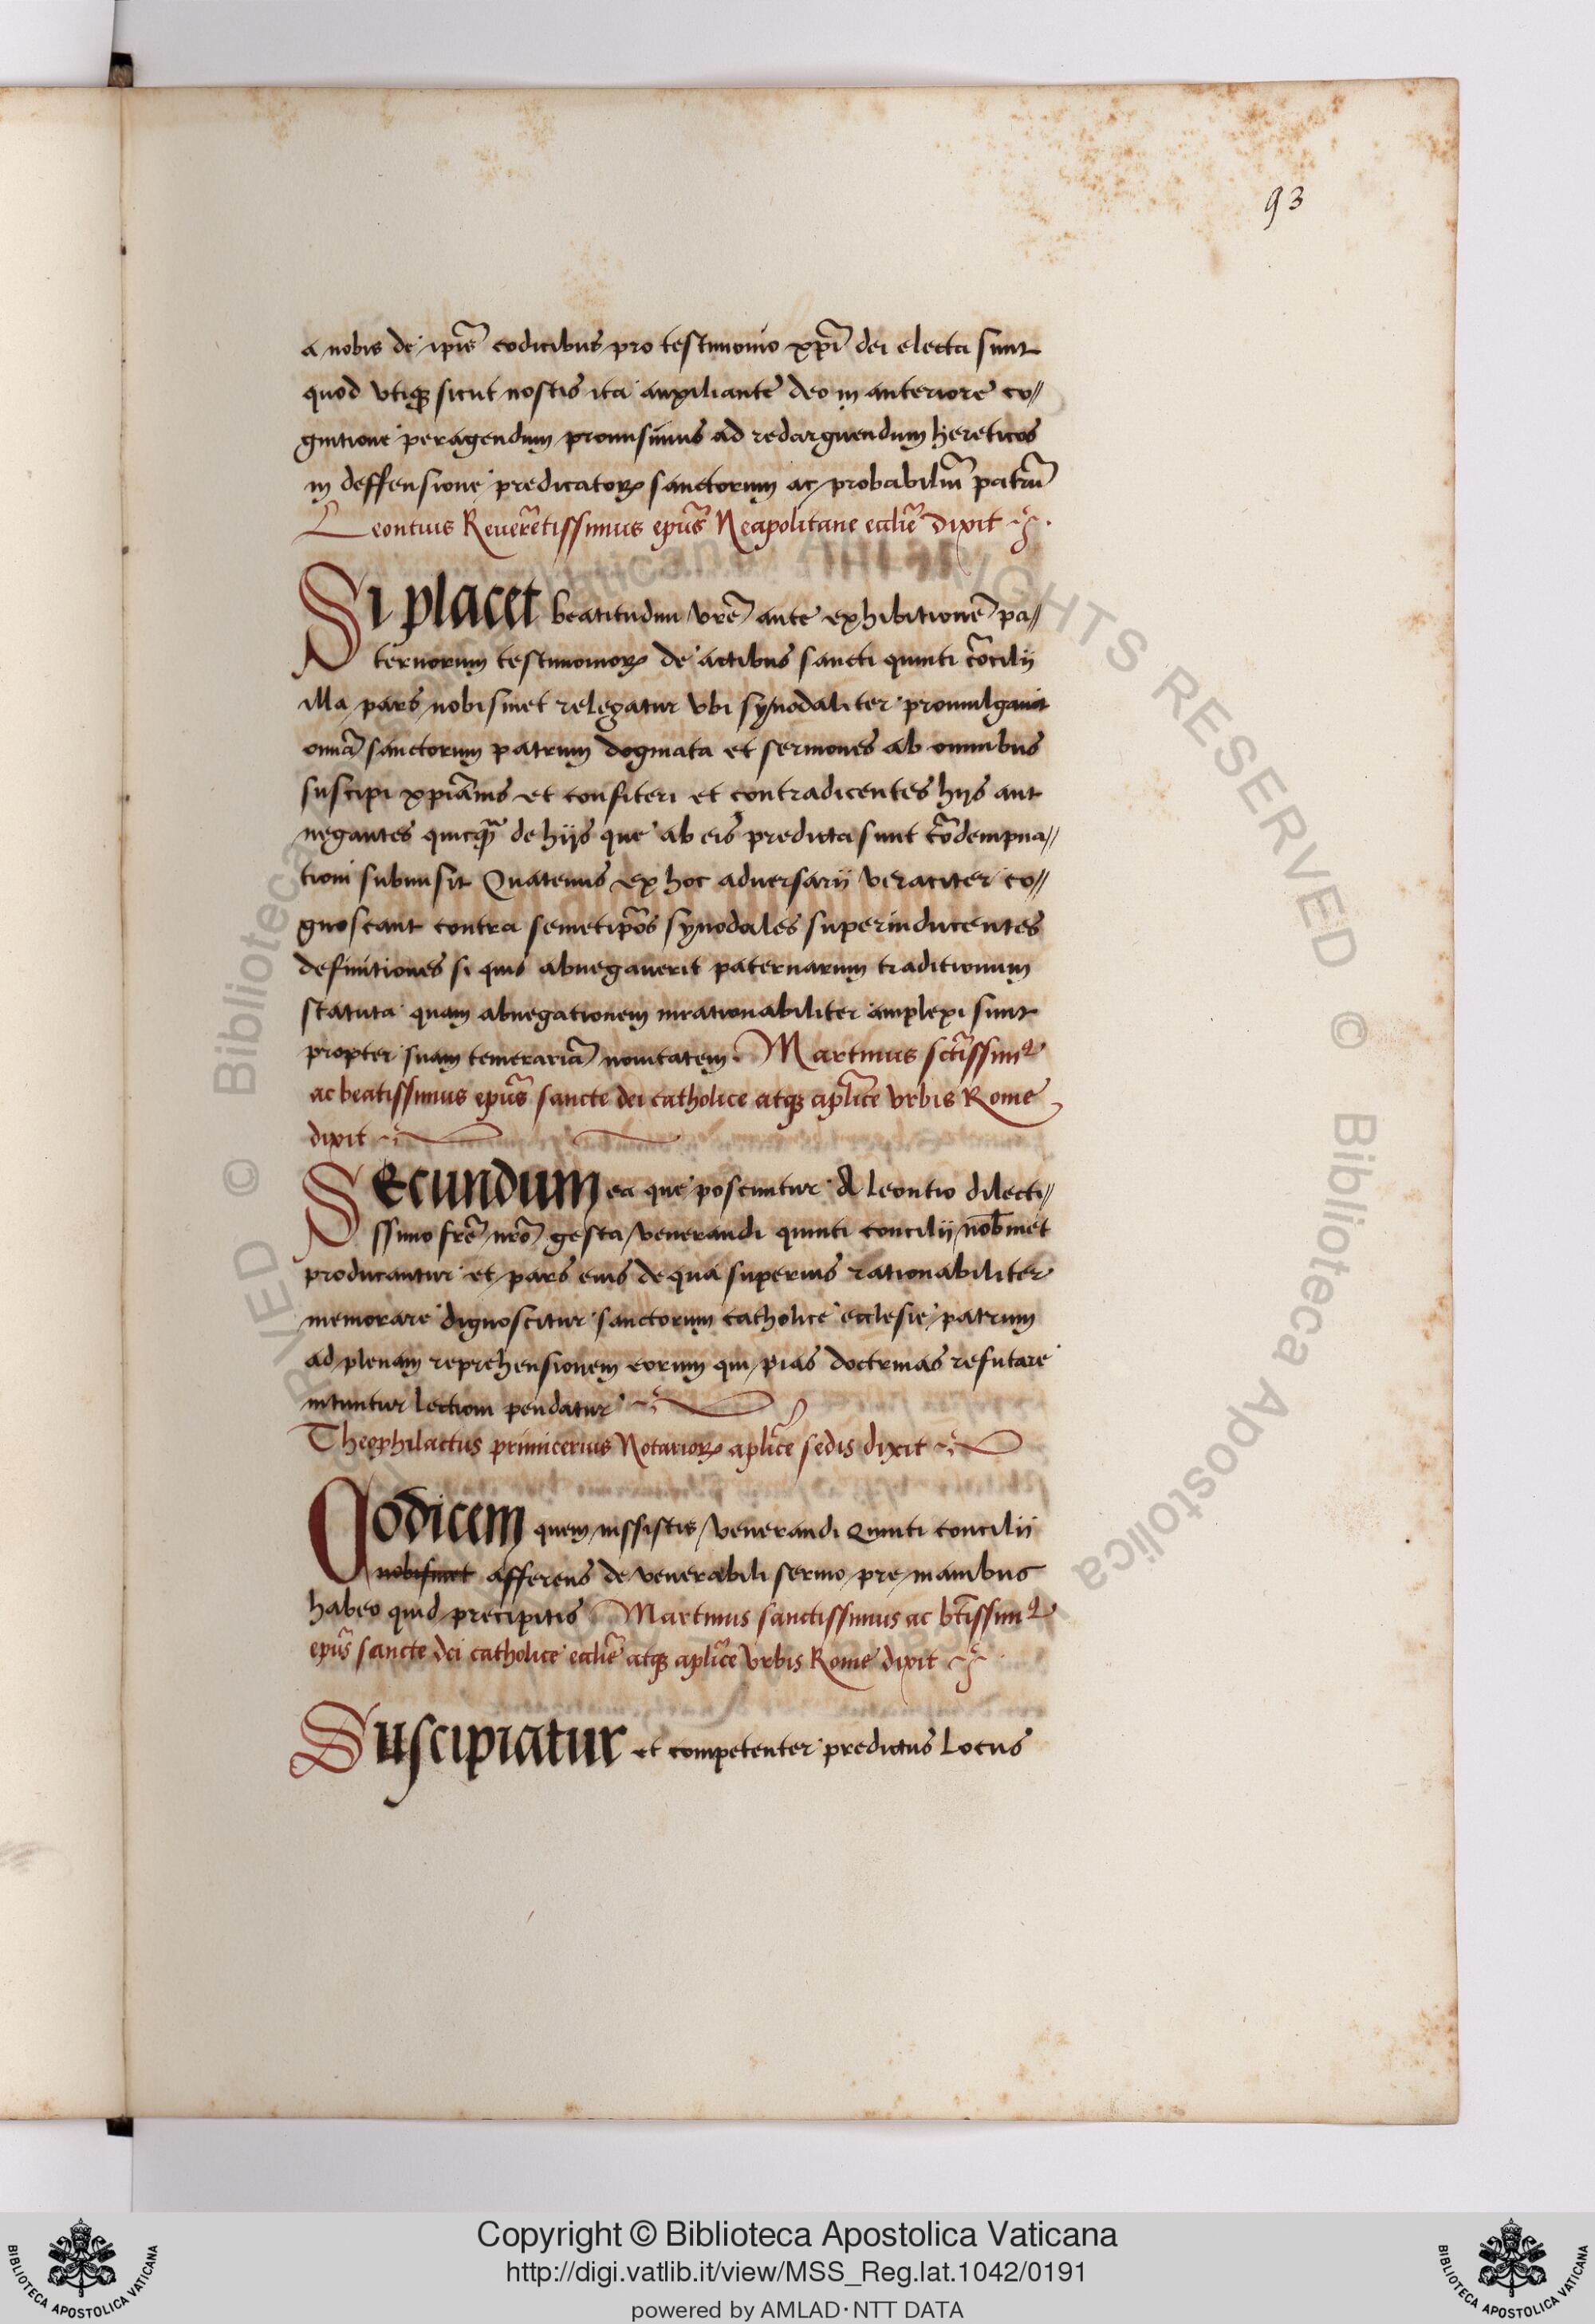 93
a nobis de ip̃is codicibus pro testimonio xp̃i dei electa sunt
quod vtiqꝫ sicut nostis ita auxiliante deo in anteriore co//
gnitione peragendum promisimus ad redarguendum hereticos
in deffensione predicatoꝝ sanctorum ac probabiliũ patrũ
Leontius Reuerẽtissimus ep̃us Neapolitane eccl̃ie dixit
Si placet beatitudini vrẽ ante exhibitionẽ pa//
ternorum testimonioꝝ de actibus sancti quinti cõcilij
illa pars nobismet relegatur vbi synodaliter promulgauit
omĩa sanctorum patrum dogmata et sermones ab omnibus
suscipi xp̃ianis et confiteri et contradicentes hijs aut
negantes quicq̃ de hijs que ab eis predicta sunt cõdempna//
tioni submisit Quatenus ex hoc aduersarij veraciter co//
gnoscant contra semetip̃os synodales superinducentes
definitiones si quis abnegauerit paternarum traditionum
statuta quam abnegationem inrationabiliter amplexi sunt
propter suam temerariã nouitatem. Martinus sc̃tissimꝰ
ac beatissimus ep̃us sancte dei catholice atqꝫ apl̃ice vrbis Rome
dixit
Secundum ea que poscuntur A leontio dilecti//
ssimo fr̃e nr̃o gesta venerandi quinti concilij nob̃met
producantur et pars eius de qua superius rationabiliter
memorare dignoscitur sanctorum catholice ecclesie patrum
ad plenam reprehensionem eorum qui pias doctrinas refutare
nituntur lectioni pendatur
Theophilactus primicerius Notarioꝝ apl̃ice sedis dixit
Codicem quem iussistis venerandi Quinti concilij
nobismet afferens de venerabili scrinio pre manibus
habeo quid precipitis Martinus sanctissimus ac bt̃issimꝰ
ep̃us sancte dei catholice eccl̃ie atqꝫ apl̃ice vrbis Rome dixit
Suscipiatur et competenter predictus locus
Copyright © Biblioteca Apostolica Vaticana
http://digi.vatlib.it/view/MSS_Reg.lat.1042/0191
powered by AMLAD·NTT DATA
BIBLIOTECA APOSTOLICA VATICANA
BIBLIOTECA APOSTOLICA VATICANA